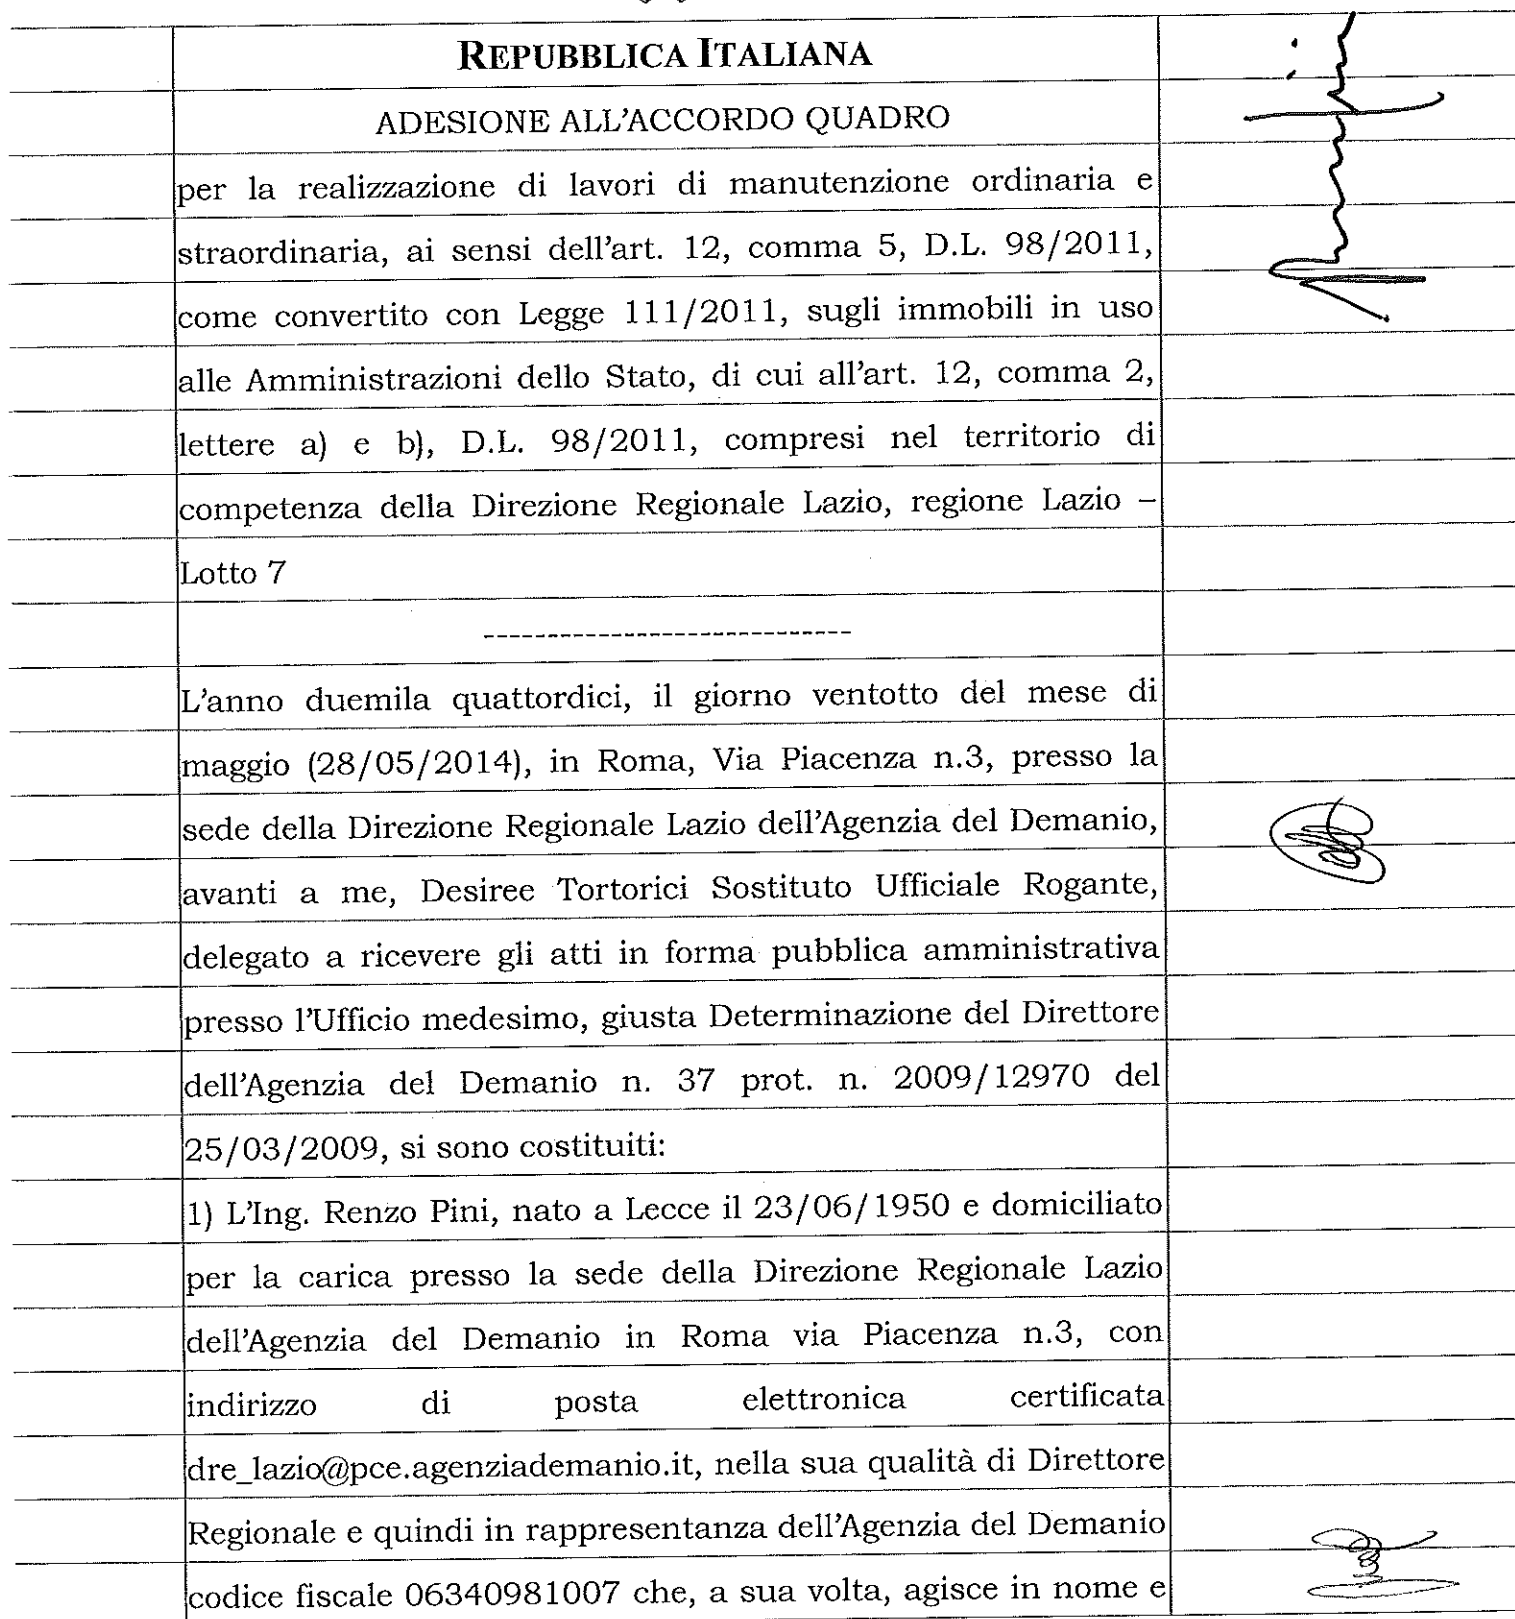 REPUBBLICA ITALIANA
ADESIONE ALL'ACCORDO QUADRO
per la realizzazione di lavori di manutenzione ordinaria e
straordinaria, ai sensi dell'art. 12, comma 5, D.L. 98/2011,
come convertito con Legge 111/2011, sugli immobili in uso
alle Amministrazioni dello Stato, di cui all'art. 12, comma 2,
lettere a) e b), D.L. 98/2011, compresi nel territorio di
competenza della Direzione Regionale Lazio, regione Lazio –
Lotto 7
----------------------------
L'anno duemila quattordici, il giorno ventotto del mese di
maggio (28/05/2014), in Roma, Via Piacenza n.3, presso la
sede della Direzione Regionale Lazio dell'Agenzia del Demanio,
avanti a me, Desiree Tortorici Sostituto Ufficiale Rogante,
delegato a ricevere gli atti in forma pubblica amministrativa
presso l'Ufficio medesimo, giusta Determinazione del Direttore
dell'Agenzia del Demanio n. 37 prot. n. 2009/12970 del
25/03/2009, si sono costituiti:
1) L'Ing. Renzo Pini, nato a Lecce il 23/06/1950 e domiciliato
per la carica presso la sede della Direzione Regionale Lazio
dell'Agenzia del Demanio in Roma via Piacenza n.3, con
indirizzo di posta elettronica certificata
dre_lazio@pce.agenziademanio.it, nella sua qualità di Direttore
Regionale e quindi in rappresentanza dell'Agenzia del Demanio
codice fiscale 06340981007 che, a sua volta, agisce in nome e